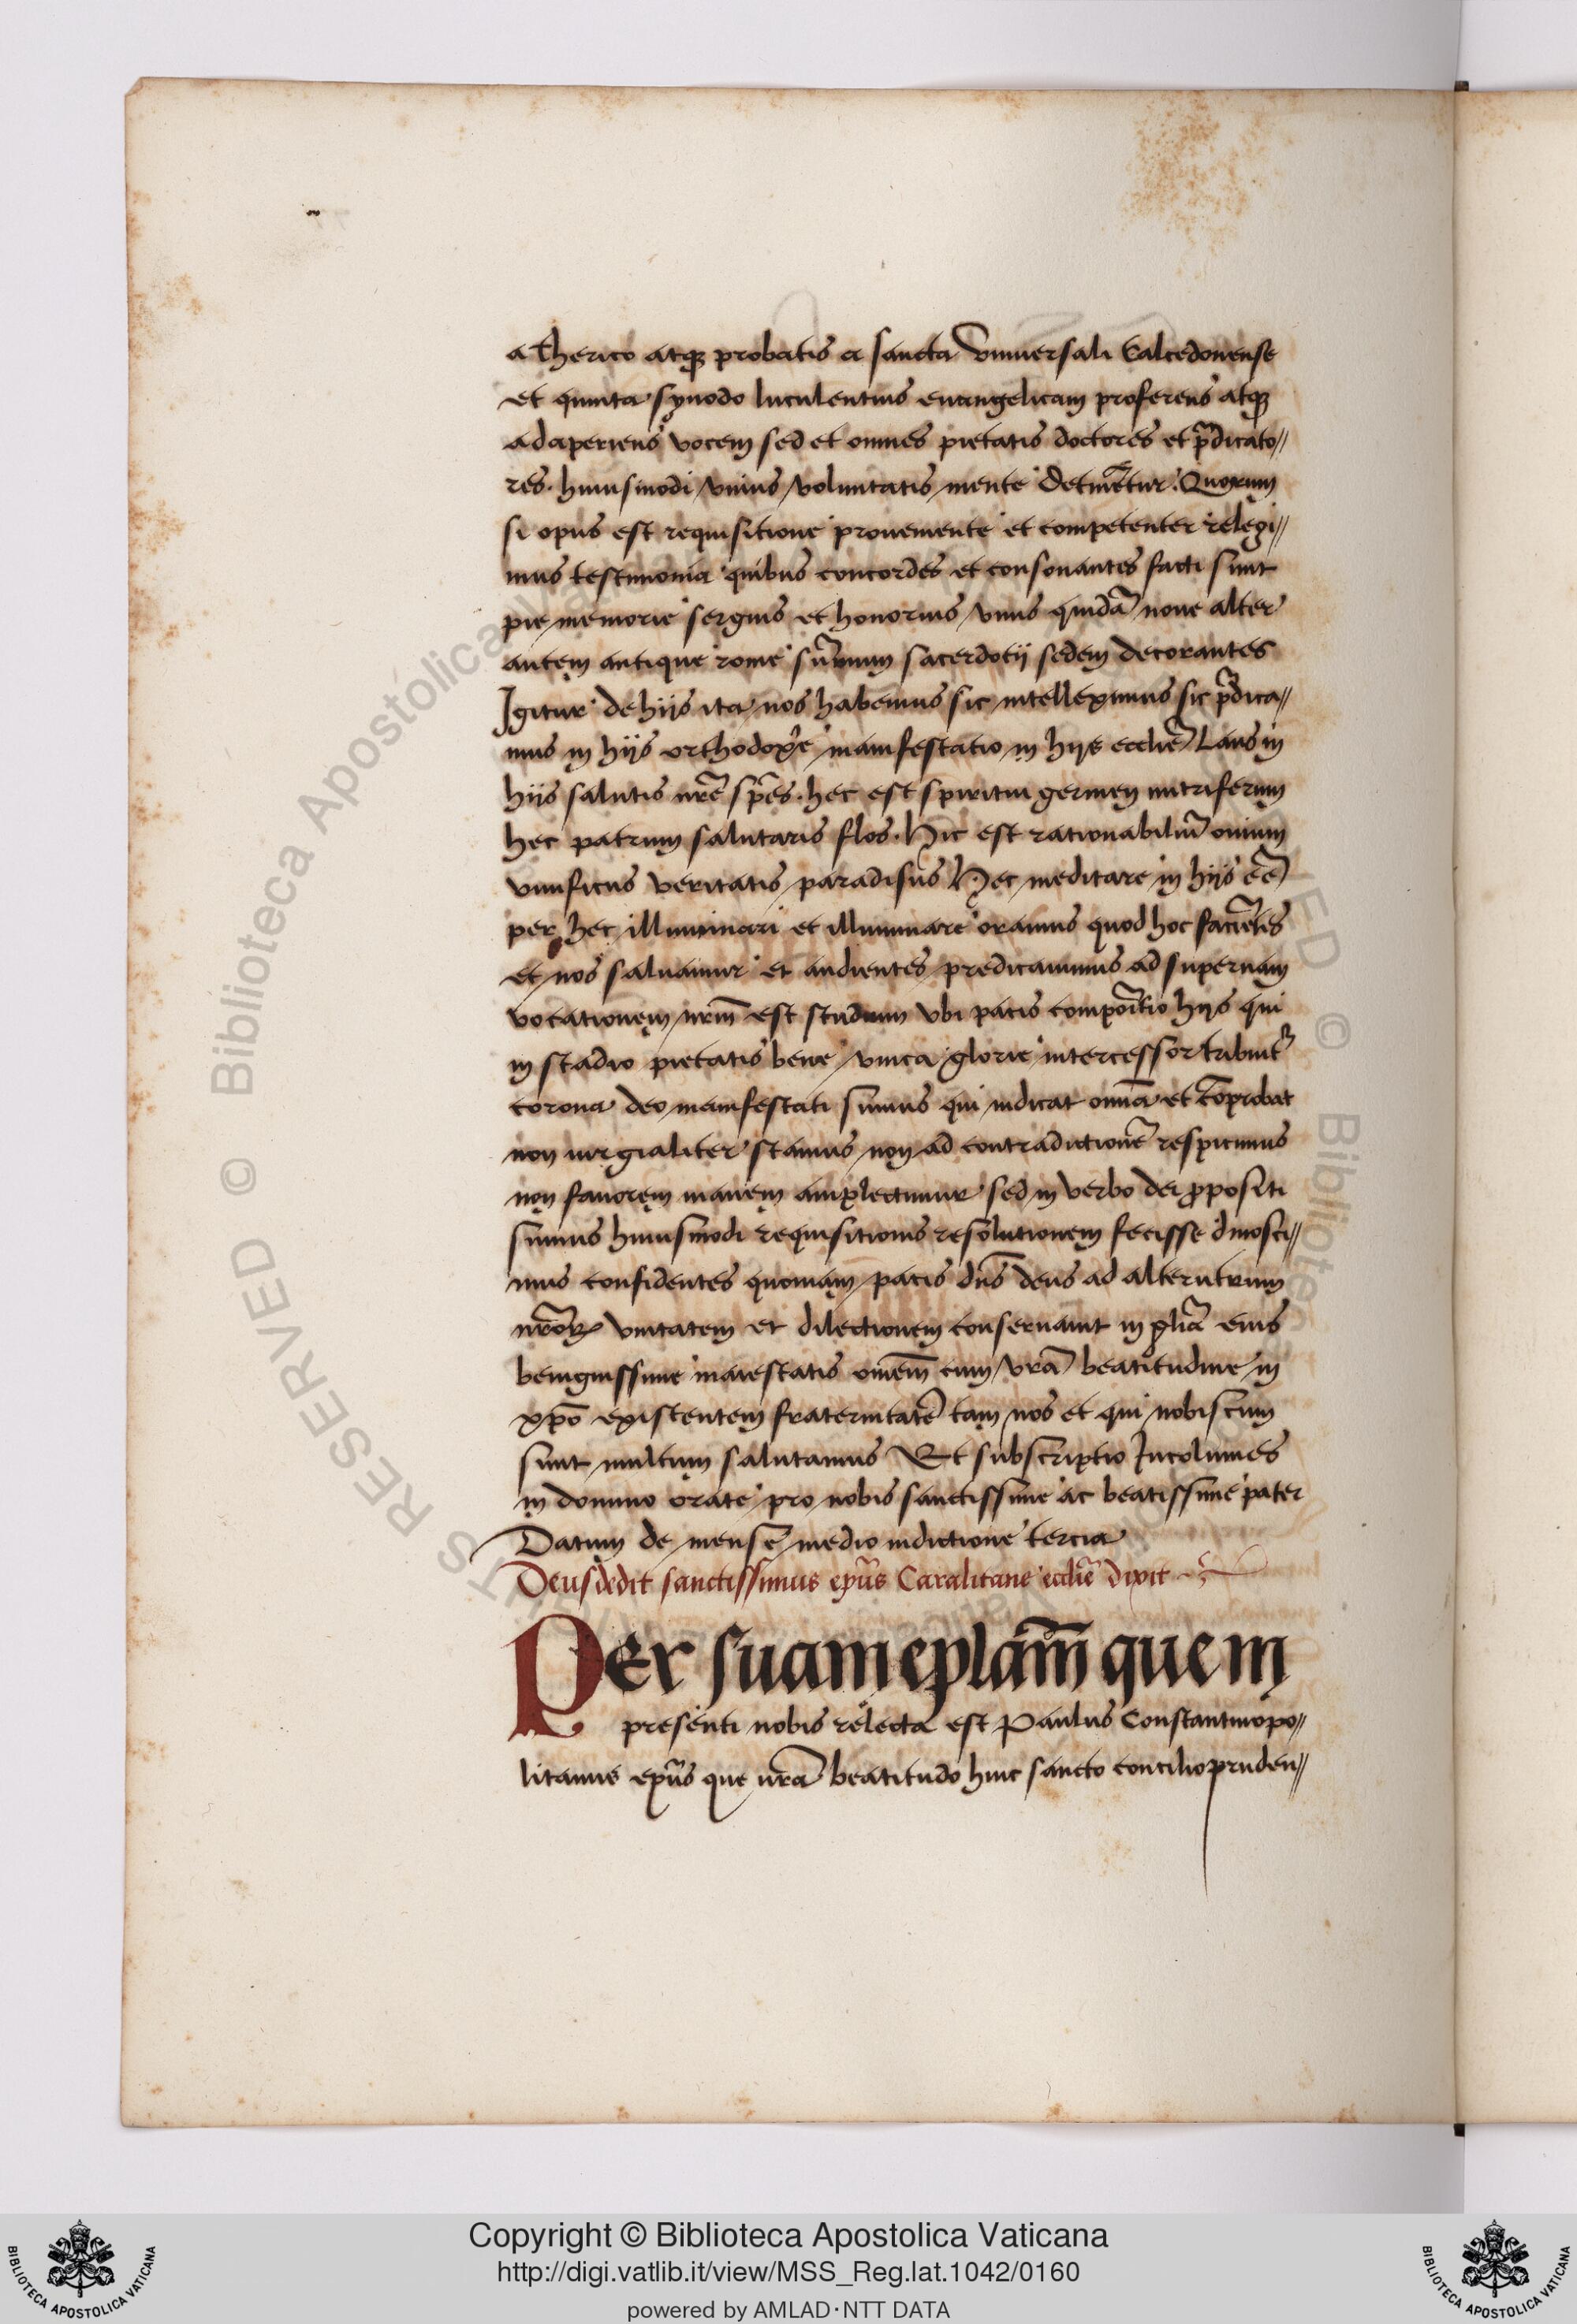 a Cherico atqȝ probatis a sancta Vniuersali Calcedonense
et quinta synodo luculentius euangelicam proferens atqȝ
adaperiens vocem sed et omnes pietatis doctores et p̄dicato//
res. huiusmodi vnius voluntatis mente Quorum
si opus est requisitione proueniente et competenter relegi//
mus testimonia quibus concordes et consonantes facti sunt
pie memorie sergius et honorius vnus quidā noue alter
autem antique rome sū̄mum sacerdotij sedem decorantes
Igitur de hijs ita nos habemus sic intelleximus sic p̄dica//
mus in hijs orthodoxe manifestatio in hijs ecclīe Laus in
hijs salutis nr̄e spes. hec est spiritui germen nutriferum
hec patrum salutaris flos. Hic est rationabiliū ouium
viuificus veritatis paradisus Hec meditare in hijs eē
per hec illuminari et illuminare oramus quod hoc faciētes
et nos saluamur et audientes predicamus ad supernam
vocationem nrm̄ est studium vbi pacis hijs qui
in stadio pietatis bene vnica glorie intercessor tribuit̄
corona deo manifestati sumus qui iudicat omīa et cōprobat
non iurgialiter stamus non ad contradictionē respicimus
non fauorem inanem amplectimur sed in verbo dei ꝓpositi
sumus huiusmodi requisitionis resolutionem fecisse dinosci//
mus confidentes quoniam pacis dn̄s deus ad alterutrum
nr̄orꝝ vnitatem et dilectionem conseruauit in gl̄ia eius
benignissime maiestatis om̄em cum vr̄a beatitudine in
xp̄o existentem fraternitatē tam nos et qui nobiscum
sunt multum salutamus Et subscriptio Incolumes
in domino orate pro nobis sanctissime ac beatissime pater
Datum de mense medio indictione tercia
Deusdedit sanctissimus ep̄us Caralitane ecclīe dixit
Per suam eplam̄ que in
presenti nobis relecta est Paulus Constantinopo//
litanus ep̄us que vr̄a beatitudo huic sancto concilio pruden//
© Biblioteca Apostolica Vaticana
RIGHTS RESERVED
Copyright © Biblioteca Apostolica Vaticana
http://digi.vatlib.it/view/MSS_Reg.lat.1042/0160
powered by AMLAD·NTT DATA
BIBLIOTECA APOSTOLICA VATICANA
BIBLIOTECA APOSTOLICA VATICANA